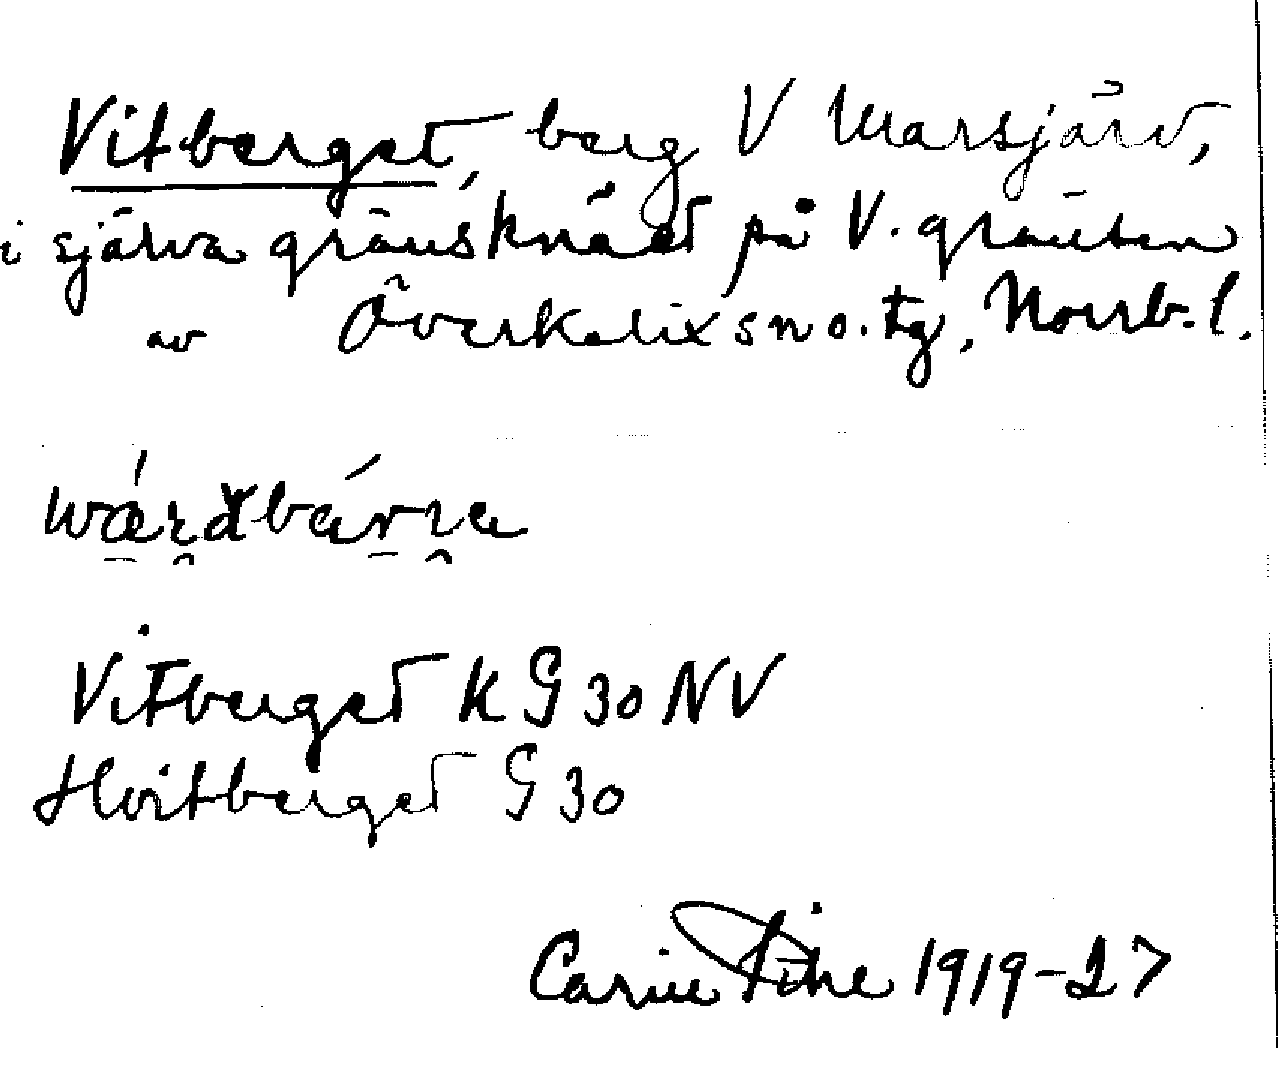 Vitberget, berg V Marsjärv,
i själva gränsknäet på V. gränsen
av Överkalix sn o. tg, Norrb. l.
Vitberget K G 30 NV
Hvitberget G 30
Carin Pihl 1919-27